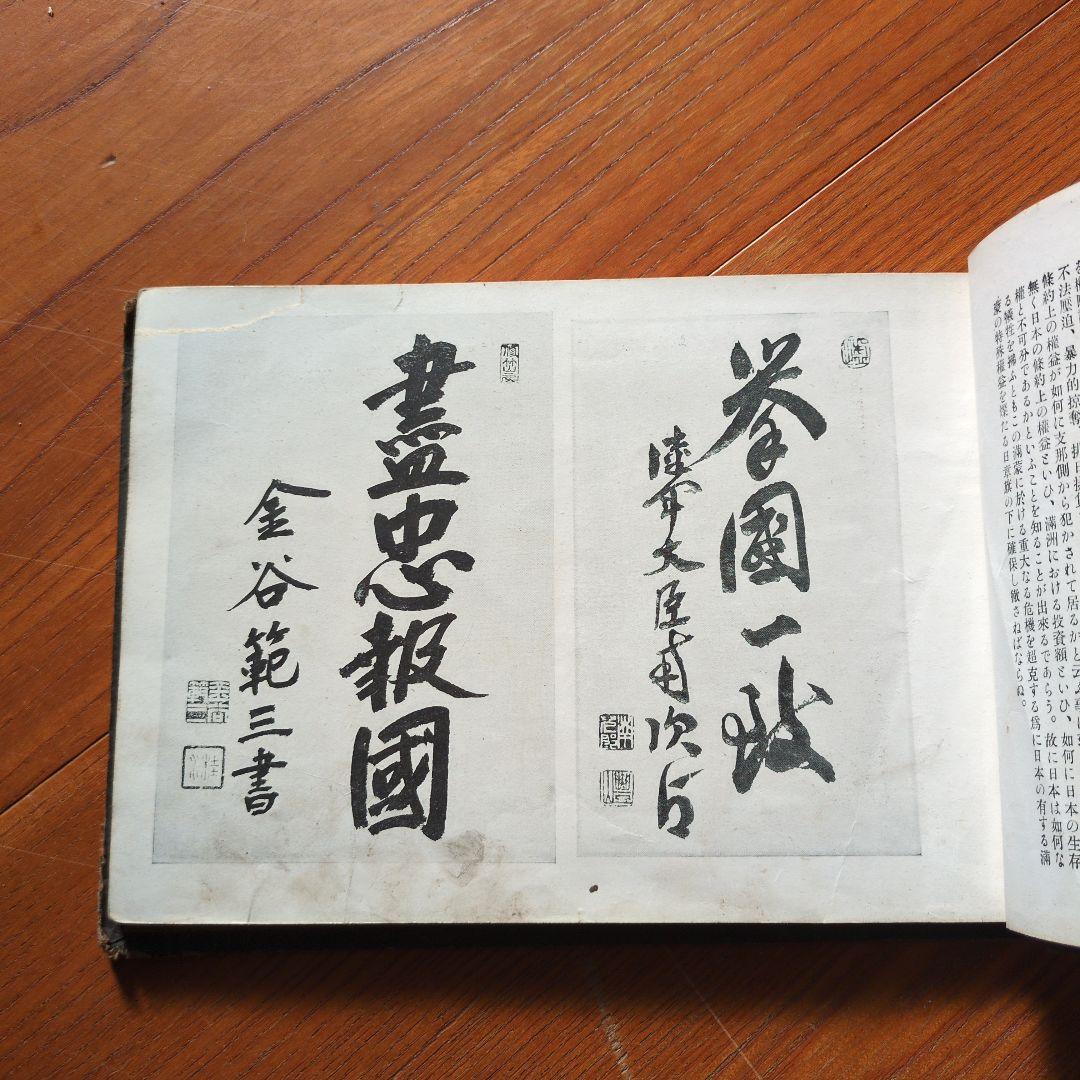 不法壓迫、暴力的掠奪、排日
條約上の權益が如何に支那側から犯かされて居るかと云ふ
無く日本の條約上の權益といひ、滿洲における投資額といひ、如何に日本の生存
權と不可分であるかといふことを知ることが出來るであらう。故に日本は如何な
る犧牲を拂ふともこの滿蒙に於ける重大なる危機を超克する爲に日本の有する滿
蒙の特殊權益を燦たる日章旗の下に確保し徹さねばならぬ。
擧國一致
陸軍大臣南次郎
盡忠報國
金谷範三書